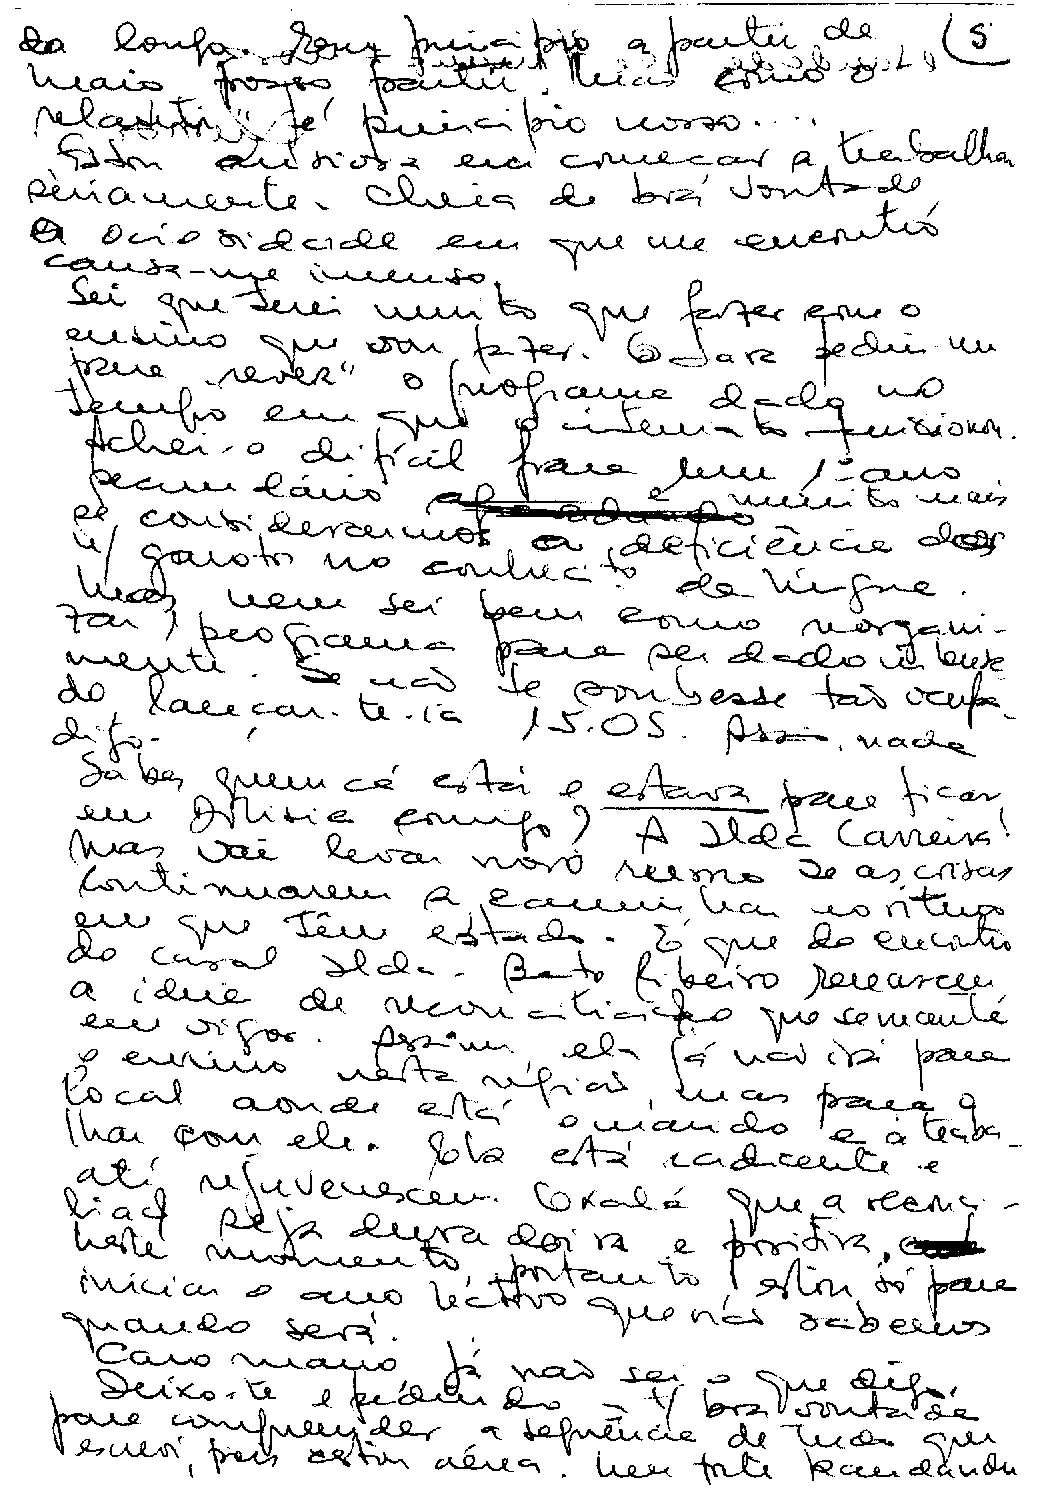 da louça. princípio a partir de (5
mais partir. Mas como o
relativi é princípio nosso....
Estou ansiosa em começar a trabalhar
seriamente. Cheia de boa vontade
A ociosidade em que me encontro
causa-me imenso.
Sei que terei muito que fazer com o
ensino que vou fazer. O Sara pediu-me
para "rever" o programa dado no
tempo em que o internato funcionou.
Achei-o difícil para um 1º ano
secundário e muito mais
se considerarmos a deficiência dos
n/ garotos no conhecito da língua.
Mas nem sei bem como reorgani-
zar o programa para ser dado
mente. Se não te soubesse tão ocupa-
do, lançar-te-ia 1 S.O.S. Assim, nada
digo.
Sabes quem cá está e estava para ficar
em comigo? A Ilda Carreira!
Mas vai levar novo rumo se as coisas
continuarem a caminhar no ritmo
em que têm estado. É que do encontro
do casal Ilda - Ribeiro renasceu
a ideia de reconciliação que se mantém
em vigor. Assim, ela já não irá para
o ensino nesta região, mas para o
local aonde está o marido e a traba-
lhar com ele. Ela está radiante e
até rejuvenesceu. Oxalá que a reconci-
liaç seja duradoira e positiva.
Neste momento, portanto, estou só para
iniciar o ano lectivo que não sabemos
quando será.
Caro mano já não sei o que digo.
Deixo-te e pedindo a t/ boa vontade
para compreender a sequência de tudo que
escrevi, pois estou aérea. Um forte kandandu